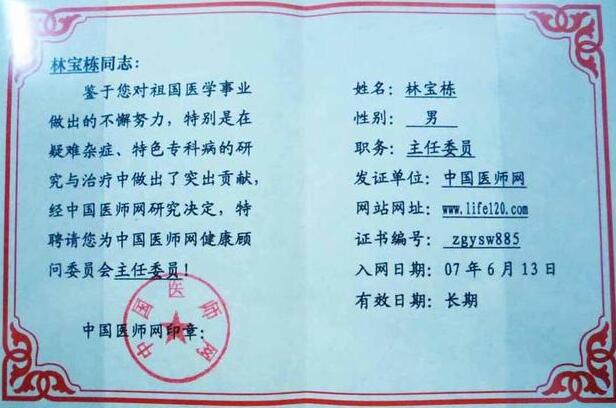 林宝栋同志：
鉴于您对祖国医学事业
做出的不懈努力，特别是在
疑难杂症、特色专科病的研
究与治疗中做出了突出贡献，
经中国医师网研究决定，特
聘请您为中国医师网健康顾
问委员会主任委员！
中国医师网印章：
中国医师网
姓名：林宝栋
性别：男
职务：主任委员
发证单位：中国医师网
网站网址：www.life120.com
证书编号：zgysw885
入网日期：07年6月13日
有效日期：长期